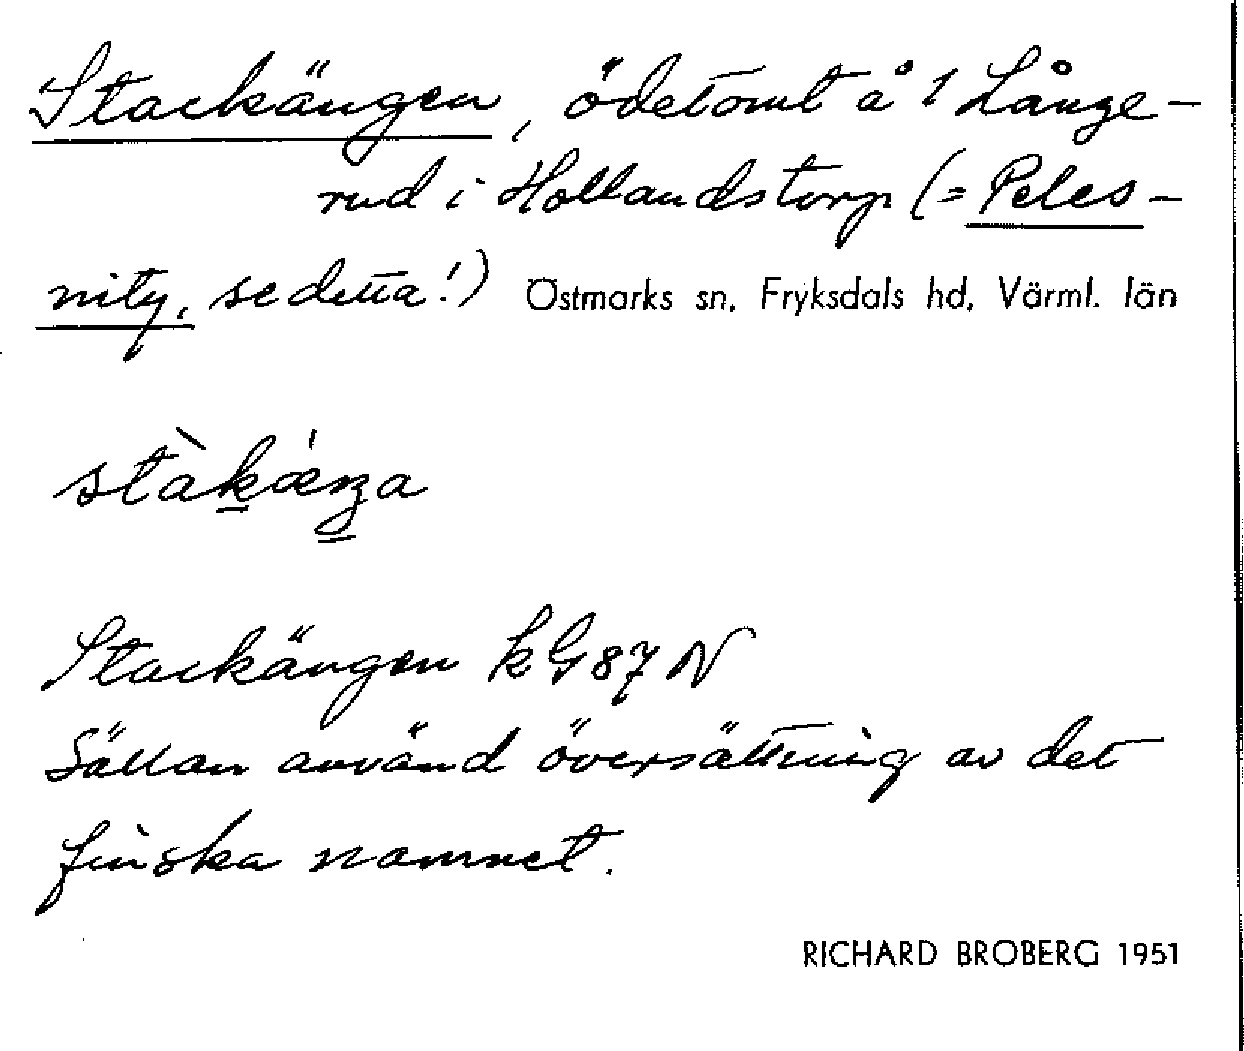 Stackängen, ödetomt å 1 Långe-
rud i Hollandstorp (= Peles-
nity, se detta!) Östmarks sn, Fryksdals hd, Värml. län
stàkǽŋa
Stackängen k G 87 N
Sällan använd översättning av det
finska namnet.
RICHARD BROBERG 1951